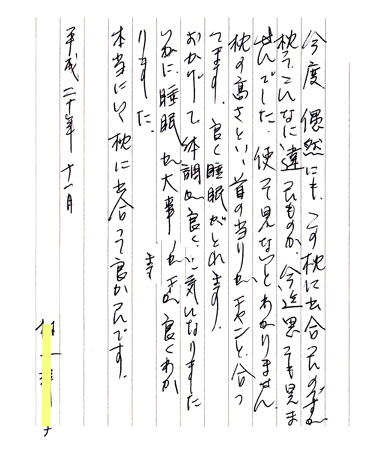 今度 偶然にも、この枕に出合えたのですが
枕で、こんなに違えるものか、今迄思っても見ま
せんでした。使って見ないとわかりません。
枕の高さといい、首の当りがチャンと、合っ
てます。良く睡眠がとれます。
おかげで体調も良く、元気になりました
いかに、睡眠が大事か 良くわか
りました。
本当にいい枕に出合って良かったです。
平成二十年 十一月